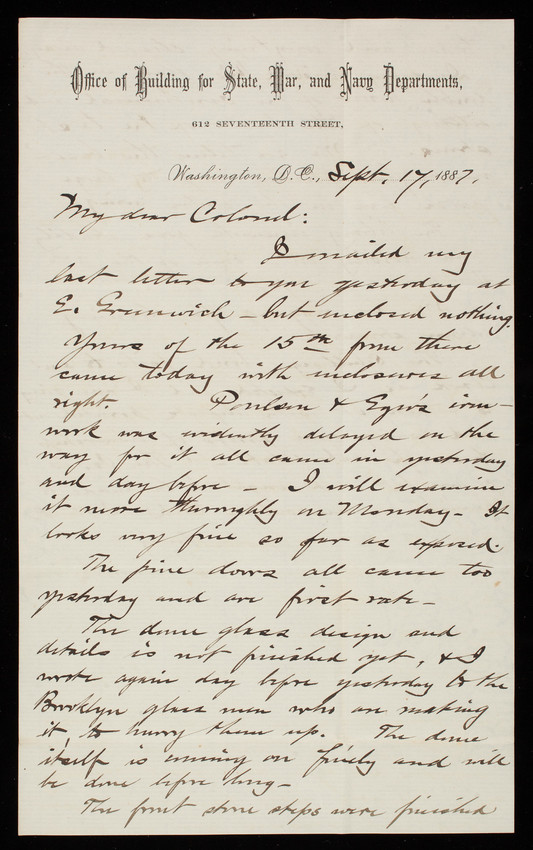 Office of Building for State, War, and Navy Departments,
612 SEVENTEENTH STREET,
Washington, D.C., Sept. 17, 1887.
My dear Colonel:
I mailed my
last letter to you yesterday at
E. Greenwich - but inclosed nothing.
Yours of the 15th from there
came today with inclosures all
right. Poulson & Eger's iron-
work was evidently delayed on the
way for it all came in yesterday
and day before - I will examine
it more thoroughly on Monday - It
looks very fine so far as exposed.
The pine doors all came too
yesterday and are first rate -
The dome glass design and
details is not finished yet, & I
wrote again day before yesterday to the
Brooklyn glass men who are making
it to hurry them up. The dome
itself is coming on finely and will
be done before long -
The front stone steps were finished